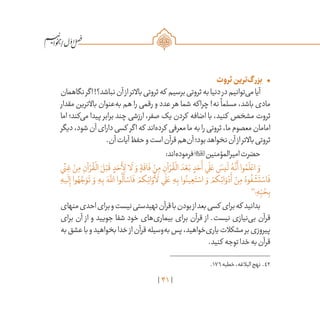 • بزرگ‌ترین ثروت
آیا می‌توانیم در دنیا به ثروتی برسیم که ثروتی بالاتر از آن نباشد؟! اگر نگاهمان
مادی باشد، مسلماً نه! چراکه شما هر عدد و رقمی را هم به‌عنوان بالاترین مقدار
ثروت مشخص کنید، با اضافه کردن یک صفر، ارزشی چند برابر پیدا می‌کند؛ اما
امامان معصوم ما، ثروتی را به ما معرفی کرده‌اند که اگر کسی دارای آن شود، دیگر
ثروتی بالاتر از آن نخواهد بود؛ آن‌هم قرآن است و حفظ آیات آن.
حضرت امیرالمؤمنین فرموده‌اند:
وَ اعْلَمُوا أَنَّهُ لَیْسَ عَلَی أَحَدٍ بَعْدَ الْقُرْآنِ مِنْ فَاقَةٍ وَ لَا لِأَحَدٍ قَبْلَ الْقُرْآنِ مِنْ غِنًی
فَاسْتَشْفُوهُ مِنْ أَدْوَائِکُمْ وَ اسْتَعِینُوا بِهِ عَلَی لَأْوَائِکُمْ فَاسْأَلُوا اللَّهَ بِهِ وَ تَوَجَّهُوا إِلَیْهِ
بِحُبِّهِ
بدانید که برای کسی بعد از بودن با قرآن تهیدستی نیست و برای احدی منهای
قرآن بی‌نیازی نیست. از قرآن برای بیماری‌های خود شفا جویید و از آن برای
پیروزی بر مشکلات یاری‌خواهید، پس به‌وسیله قرآن از خدا بخواهید و با عشق به
قرآن به خدا توجه کنید.
۴۲. نهج البلاغه، خطبه ۱۷۶
[ ۳۱ ]